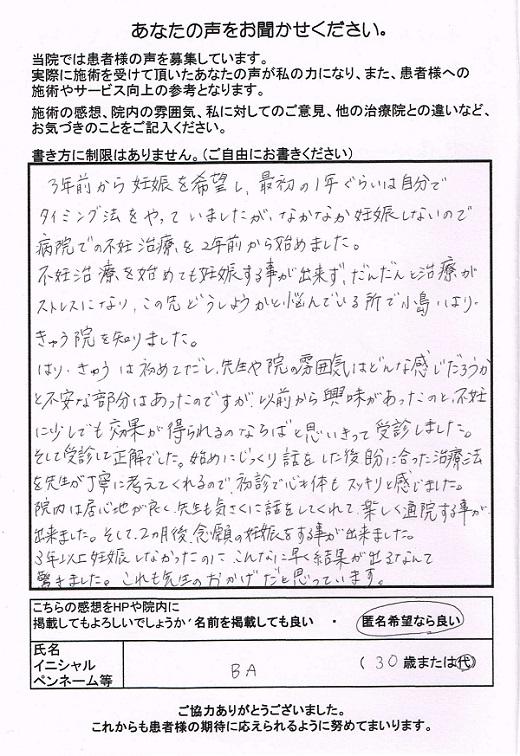 あなたの声をお聞かせください。
当院では患者様の声を募集しています。
実際に施術を受けて頂いたあなたの声が私の力になり、また、患者様への
施術やサービス向上の参考となります。
施術の感想、院内の雰囲気、私に対してのご意見、他の治療院との違いなど、
お気づきのことをご記入ください。
書き方に制限はありません。(ご自由にお書きください)
3年前から妊娠を希望し、最初の1年ぐらいは自分で
タイミング法をやっていましたが、なかなか妊娠しないので
病院での不妊治療を2年前から始めました。
不妊治療を始めても妊娠する事が出来ず、だんだんと治療が
ストレスになり、この先どうしようかと悩んでいる所で小島はり・
きゅう院を知りました。
はり・きゅうは初めてだし、先生や院の雰囲気はどんな感じだろうか
と不安な部分はあったのですが、以前から興味があったのと、不妊
に少しでも効果が得られるのならばと思いきって受診しました。
そして受診して正解でした。始めにじっくり話をした後自分に合った治療法
を先生が丁寧に考えてくれるので、初診で心も体もスッキリと感じました。
院内は居心地が良く、先生も気さくに話をしてくれて、楽しく通院する事が
出来ました。そして、2ヵ月後、念願の妊娠をする事が出来ました。
3年以上妊娠しなかったのに、こんなに早く結果が出るなんて
驚きました。これも先生のおかげだと思っています。
こちらの感想をHPや院内に
掲載してもよろしいでしょうか 名前を掲載しても良い ・ 匿名希望なら良い
氏名
イニシャル
ペンネーム等
BA
(30歳または代)
ご協力ありがとうございました。
これからも患者様の期待に応えられるように努めてまいります。